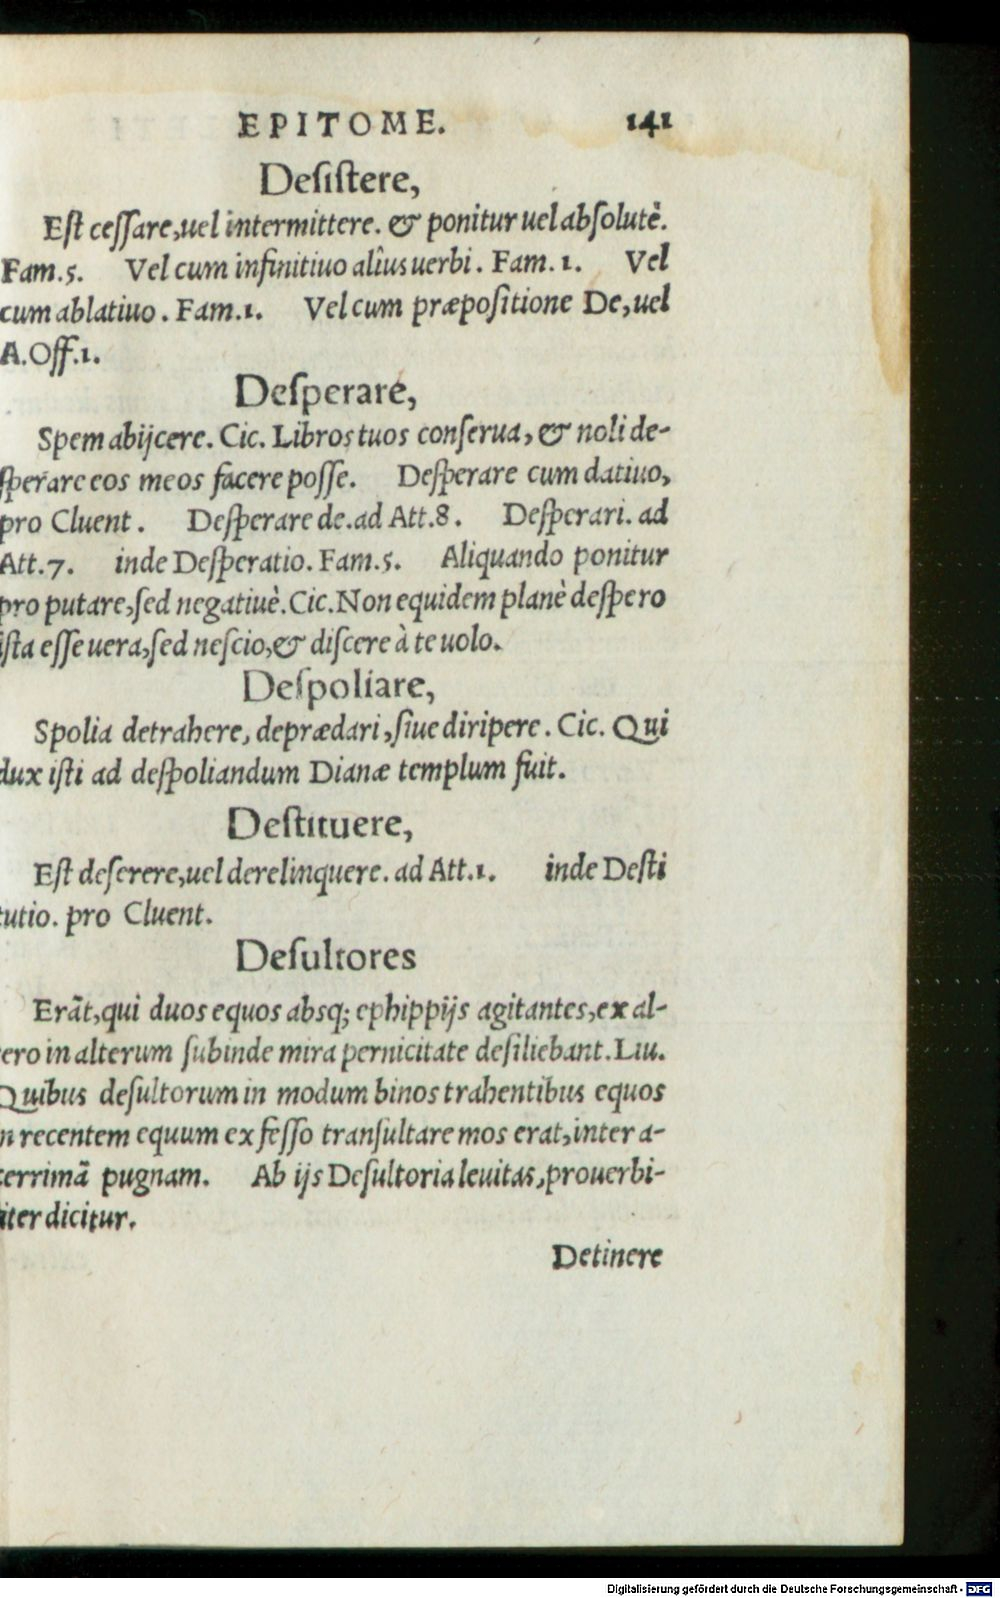 EPITOME. 141
Deſiſtere,
Eſt ceſſare,uel intermittere. & ponitur uel abſolutè.
Fam.5. Vel cum infinitiuo alius uerbi. Fam.1. Vel
cum ablatiuo. Fam.1. Vel cum præpoſitione De,uel
A.Off.1.
Deſperare,
Spem abijcere. Cic. Libros tuos conſerua, & noli de-
ſperare eos meos facere poſſe. Deſperare cum datiuo,
pro Cluent. Deſperare de.ad Att.8. Deſperari. ad
Att.7. inde Deſperatio. Fam.5. Aliquando ponitur
pro putare,ſed negatiuè.Cic.Non equidem planè deſpero
iſta eſſe uera,ſed neſcio,& diſcere à te uolo.
Deſpoliare,
Spolia detrahere, deprædari,ſiue diripere. Cic. Qui
dux iſti ad deſpoliandum Dianæ templum fuit.
Deſtituere,
Eſt deſerere,uel derelinquere. ad Att.1. inde Deſti
tutio. pro Cluent.
Deſultores
Erāt,qui duos equos absq; ephippijs agitantes,ex al-
tero in alterum ſubinde mira pernicitate deſiliebant.Liu.
Quibus deſultorum in modum binos trahentibus equos
in recentem equum ex feſſo tranſultare mos erat,inter a-
cerrimā pugnam. Ab ijs Deſultoria leuitas,prouerbi-
iter dicitur.
Detinere
Digitalisierung gefördert durch die Deutsche Forschungsgemeinschaft - DFG